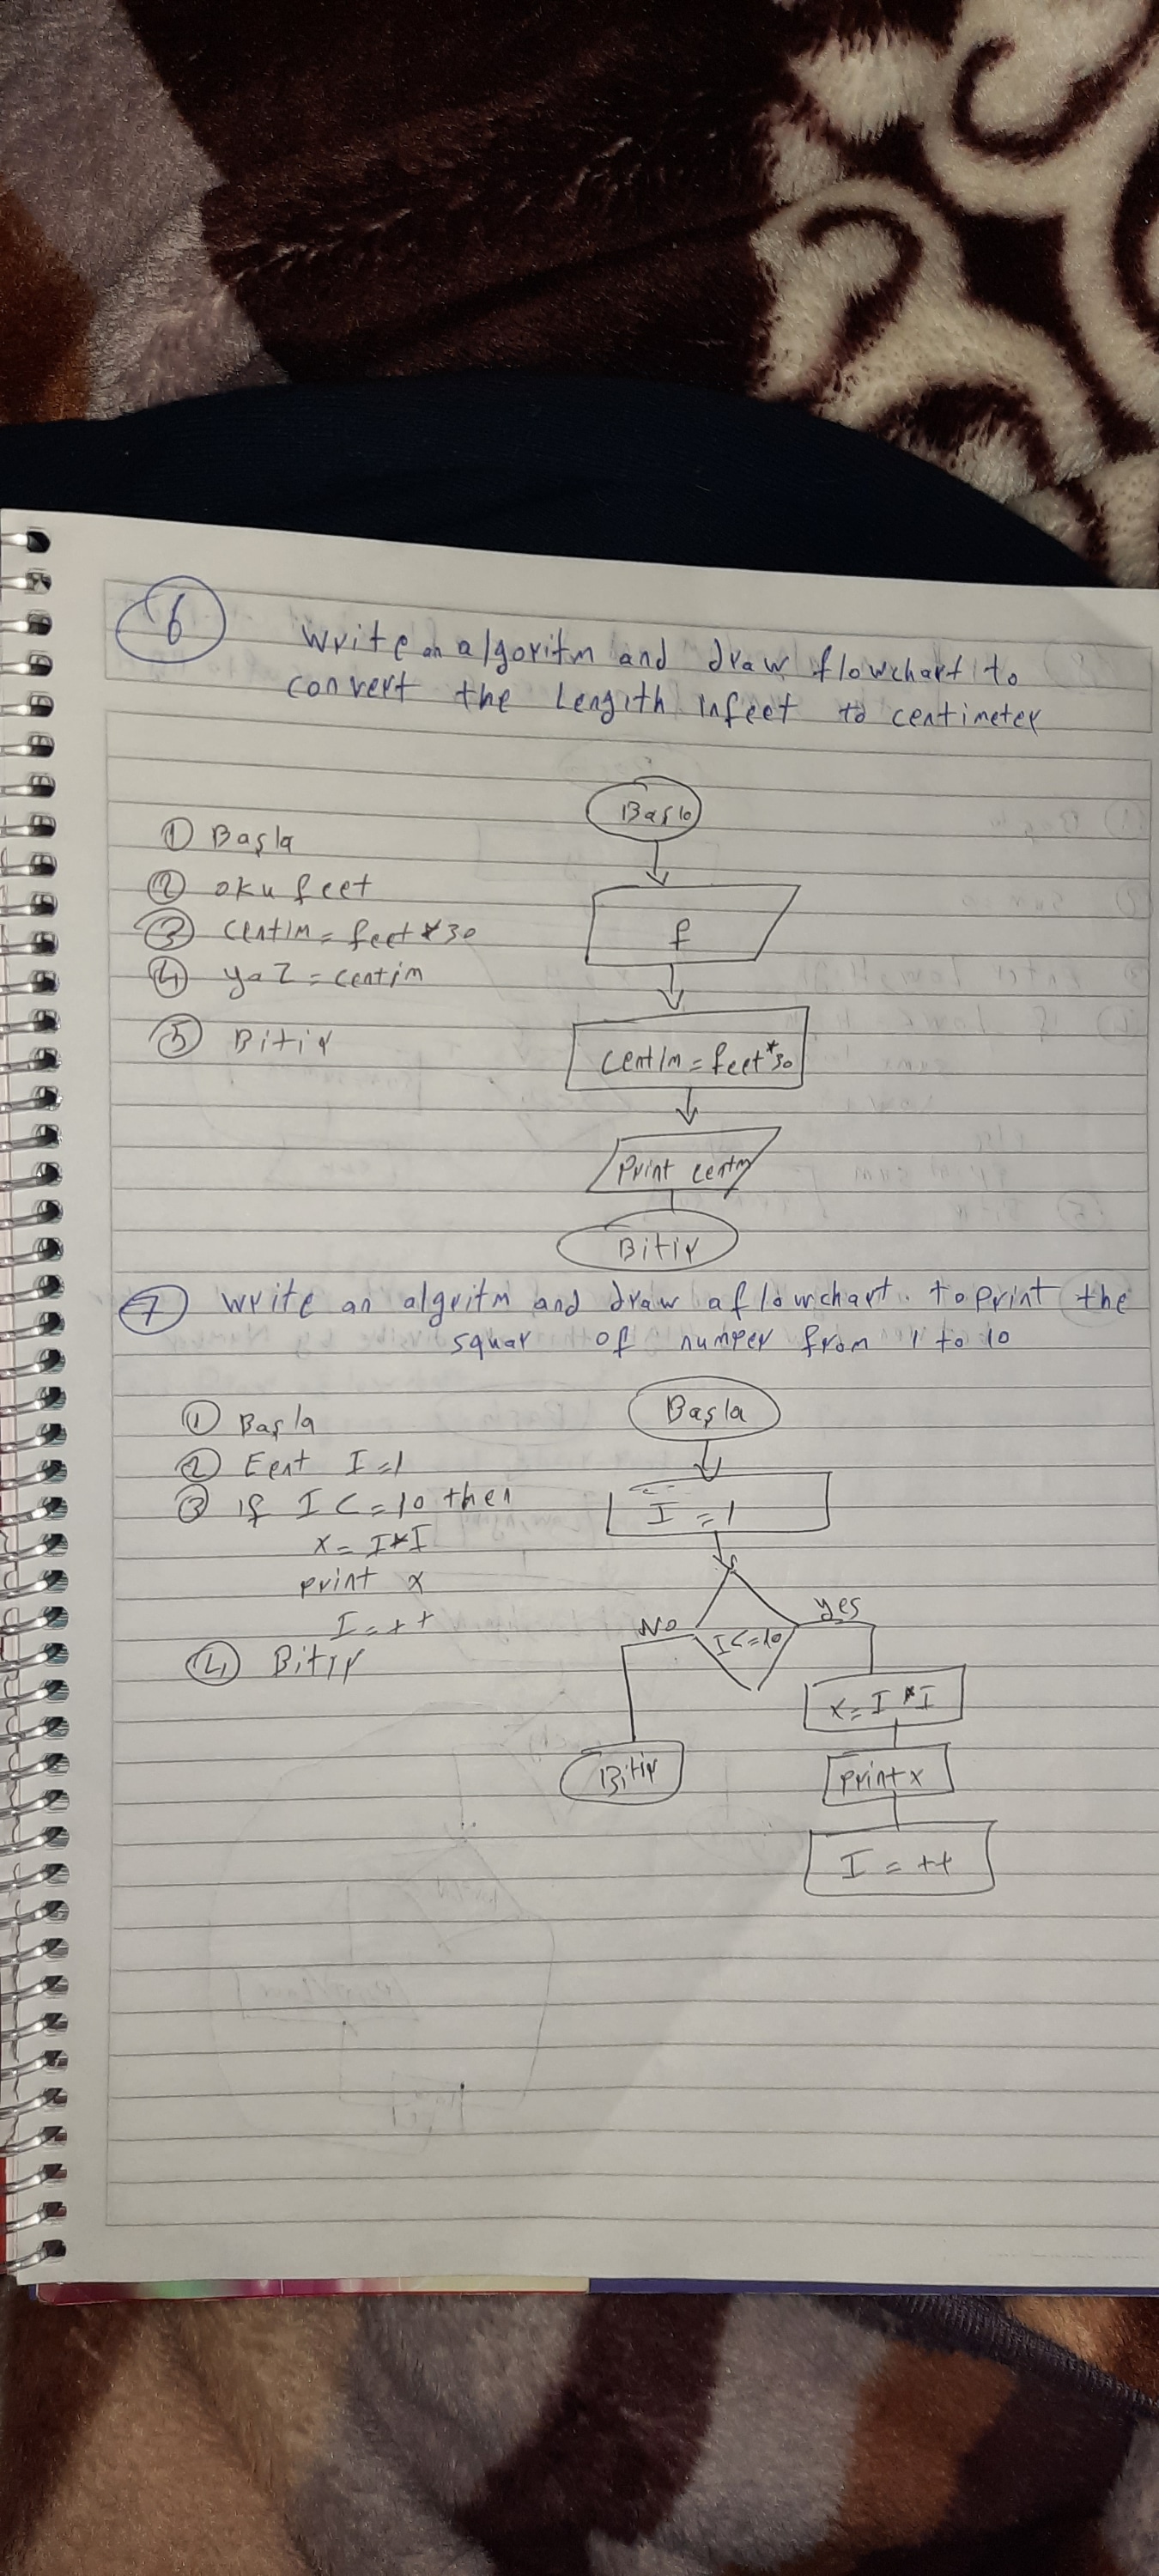 6
Write an algoritm and draw flowchart to
convert the Lengith infeet to centimeter
① Başla
② oku feet
③ centim = feet * 30
④ yaz = centim
⑤ Bitir
Başla
f
centim = feet * 30
Print centm
Bitir
7 Write an algritm and draw a flowchart. to print the
squar of numper from 1 to 10
① Başla
② Eent I =1
③ if I <= 10 then
x = I*I
print x
I = ++
④ Bitir
Başla
I = 1
I <= 10
No
yes
x = I * I
print x
I = ++
Bitir